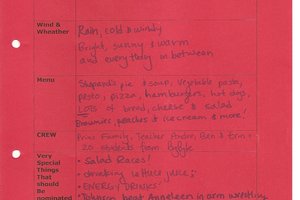 Wind &
Wheather
Rain, cold & windy
Bright, sunny & warm
and everything in between
Menu
Shepard's pie & soup, Vegetable pasta,
pesto, pizza, hamburgers, hot dogs,
LOTS of bread, cheese & salad
Brownies, peaches & ice cream & more!
CREW
Family, Teacher Andre, Ben & Erin +
20 students from
Very
Special
Things
That
should
Be
nominated
• Salad Races!
• drinking lettuce juice
• ENERGY DRINKS!
• Johnson beat Anneleen in arm wrestling